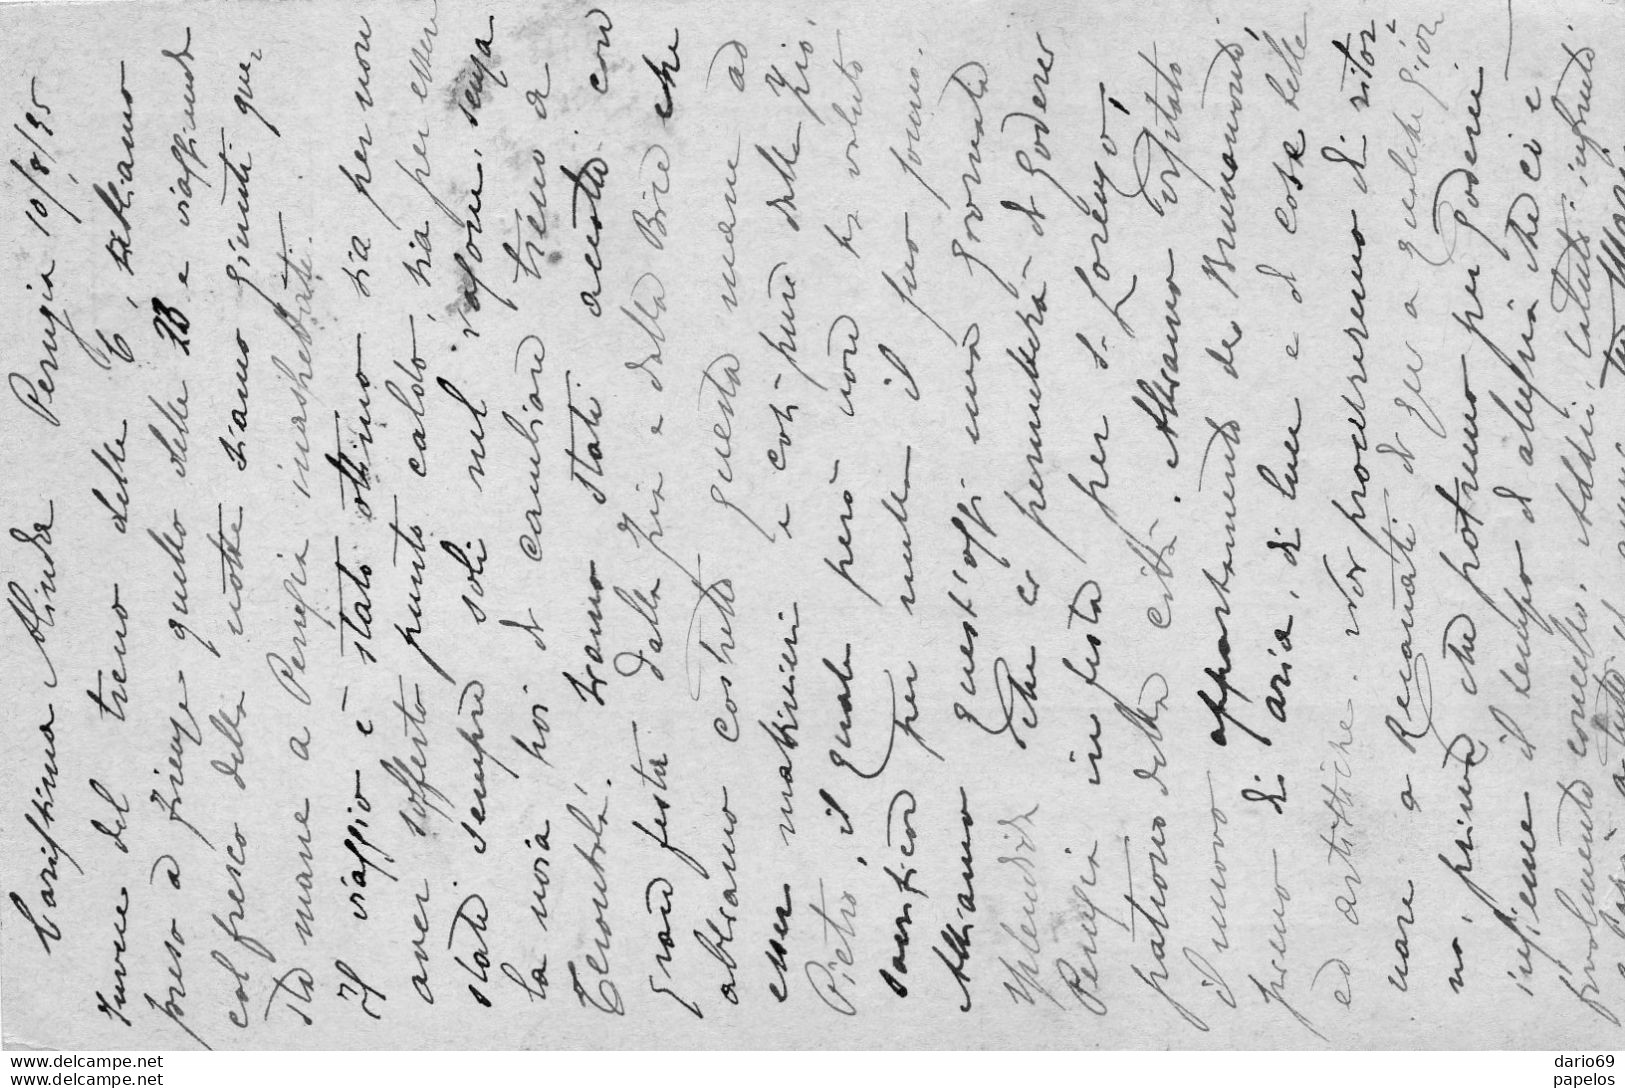 Carissima Olinda Perugia 10/8/35
Invece del treno delle 6, abbiamo
preso a Firenze quello delle 23 e viaggiando
col fresco della notte siamo giunti que-
sta mane a Perugia inaspettati.
Il viaggio è stato ottimo sia per non
aver sofferto punto caldo, sia per esser
stati sempre soli nel vagone, senza
la noia poi di cambiare treno a
Terontola. Siamo stati accolti con
gran festa dalla zia e dalla Bice che
abbiamo costretto questa mane ad
esser mattiniere e così pure dallo zio
Pietro, il quale però non ha voluto
sacrificar per nulla il suo sonno.
Abbiamo quest'oggi una giornata
splendida che ci permetterà di godere
Perugia in festa per S. Lorenzo,
patrono della città. Abbiamo visitato
il nuovo appartamento dei Brunamonti,
pieno di aria, di luce e di cose belle
ed artistiche. Noi procureremo di ritor-
nare a Recanati di qui a qualche gior-
no, prima che potremo per goderci
insieme il tempo di allegria che ci è
finalmente concesso. Addio, saluti infiniti
www.delcampe.net
www.delcampe.net
dario69
papelos